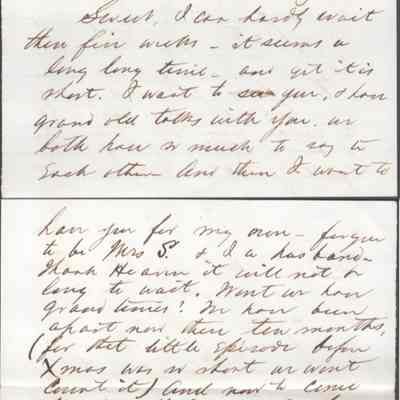 Sweet, I can hardly wait
these five weeks - it seems a
long long time - and yet it is
short. I want to see you, & have
grand old talks with you. we
both have so much to say to
each other. And then I want to
have you for my own - for you
to be Mrs S. & I a husband -
Thank Heaven it will not be
long to wait. Wont we have
grand times? We have been
apart now these ten months,
(for that little Episode before
Xmas was so short we wont
count it) And now to come